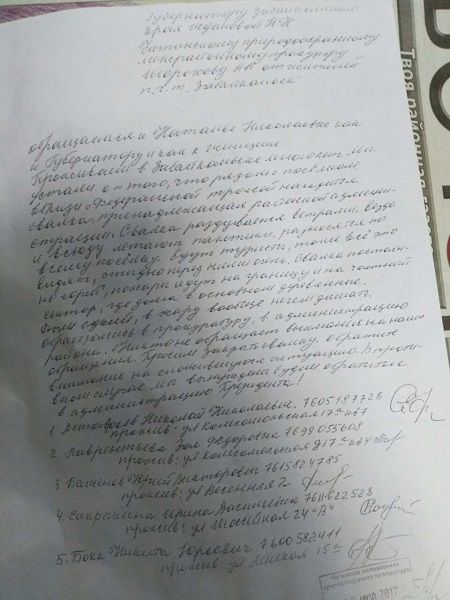 Губернатору Забайкальского
края Ждановой Н.Н.
Читинскому природоохранному
межрайонному прокурору
от жителей
п.г.т. Забайкальск
обращаемся к Наталье Николаевне как
к Губернатору и как к женщине
Проживаем в Забайкальске много лет. Мы
устали от того, что рядом с посёлком
вблизи Федеральной трассой находится
свалка, принадлежащая районной админи-
страции. Свалка раздувается ветрами, везде
и всюду летают пакетики, разносятся по
всему посёлку. Едут туристы, тоже всё это
видят, стыдно перед ними очень. Свалка постоян-
но горит, пожары идут на границу и на частный
сектор, где дома в основном деревянные.
в жару вообще нечем дышать.
обращались в прокуратуру, в администрацию
района. Никто не обращает внимания на наши
обращения. Просим обратить
внимание на сложившуюся ситуацию. В проти-
вном случае мы вынуждены будем обратиться
в администрацию Президента!
1. Николай Николаевич. 7605187728
прожив: ул Комсомольская 17а кв7
2 Лаврентьева Зоя Федоровна 7699055608
прожив: ул Комсомольская д17а кв4
3 Баженов Юрий Викторович 7615824785
прожив: ул Весенняя 2
4. Ирина Васильевна 7611622528
прожив: ул Шоссейная 24 "А"
5. Бокк Никита Юрьевич 7600582411
прожив: ул 15а
Читинская межрайонная
природоохранная прокуратура
2017
Твоя районная